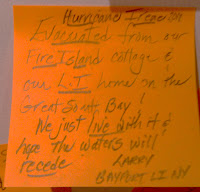 Hurricane Irene
Evacuated from our
Fire Island cottage &
our L.I home on the
Great South Bay!
We just live with it &
hope the waters will
recede! LARRY
BAYPORT LI NY